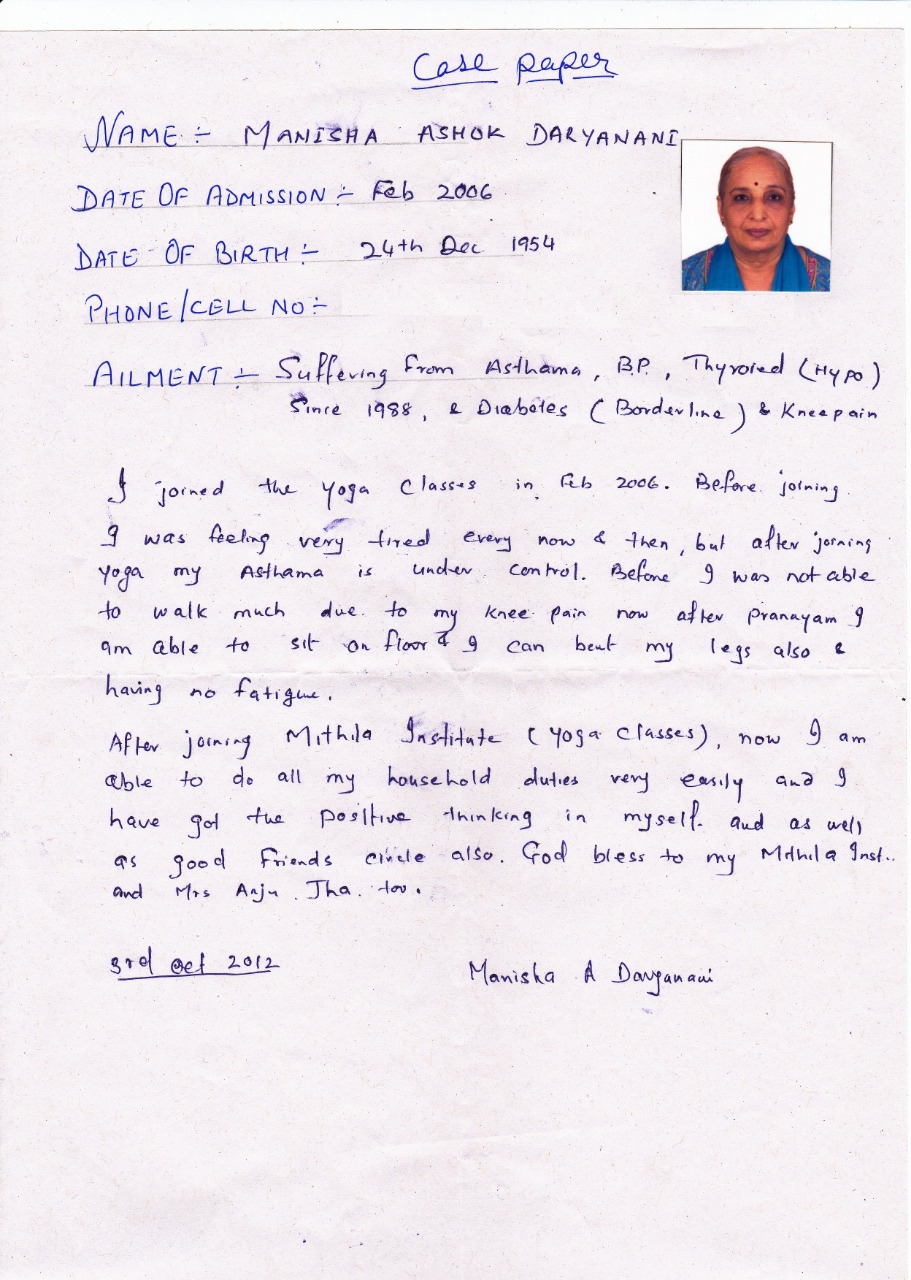 Case paper
NAME :- MANISHA ASHOK DARYANANI
DATE OF ADMISSION :- Feb 2006
DATE OF BIRTH :- 24th Dec 1954
PHONE/CELL NO :-
AILMENT :- Suffering From Asthama, B.P., Thyroied (Hypo)
Since 1988, & Diabetes (Borderline) & Knee pain
I joined the yoga Classes in Feb 2006. Before joining
I was feeling very tired every now & then, but after joining
yoga my Asthama is under control. Before I was not able
to walk much due to my knee pain now after Pranayam I
am able to sit on floor & I can bent my legs also &
having no fatigue.
After joining Mithila Institute (Yoga Classes), now I am
able to do all my household duties very easily and I
have got the positive thinking in myself. and as well
as good Friends circle also. God bless to my Mithila Inst..
and Mrs Anju Jha too.
3rd Oct 2012
Manisha A Daryanani